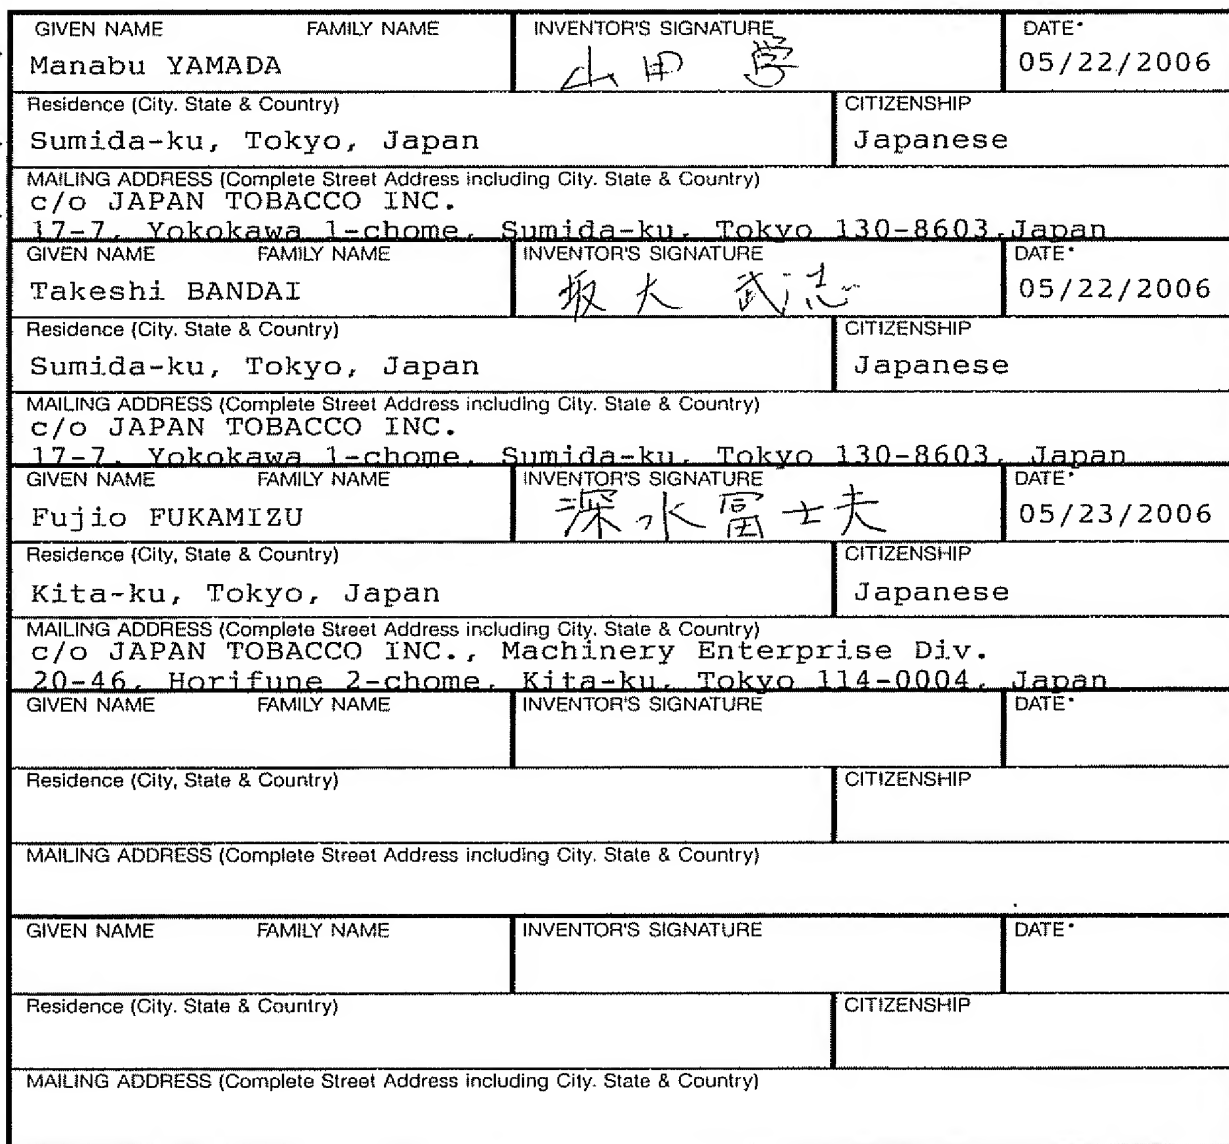 GIVEN NAME FAMILY NAME INVENTOR'S SIGNATURE DATE*
Manabu YAMADA 山田 学 05/22/2006
Residence (City. State & Country) CITIZENSHIP
Sumida-ku, Tokyo, Japan Japanese
MAILING ADDRESS (Complete Street Address including City. State & Country)
c/o JAPAN TOBACCO INC.
17-7, Yokokawa 1-chome, Sumida-ku, Tokyo 130-8603,Japan
GIVEN NAME FAMILY NAME INVENTOR'S SIGNATURE DATE*
Takeshi BANDAI 坂大 武志 05/22/2006
Residence (City. State & Country) CITIZENSHIP
Sumida-ku, Tokyo, Japan Japanese
MAILING ADDRESS (Complete Street Address including City. State & Country)
c/o JAPAN TOBACCO INC.
17-7, Yokokawa 1-chome, Sumida-ku, Tokyo 130-8603, Japan
GIVEN NAME FAMILY NAME INVENTOR'S SIGNATURE DATE*
Fujio FUKAMIZU 深水冨士夫 05/23/2006
Residence (City, State & Country) CITIZENSHIP
Kita-ku, Tokyo, Japan Japanese
MAILING ADDRESS (Complete Street Address including City. State & Country)
c/o JAPAN TOBACCO INC., Machinery Enterprise Div.
20-46, Horifune 2-chome, Kita-ku, Tokyo 114-0004, Japan
GIVEN NAME FAMILY NAME INVENTOR'S SIGNATURE DATE*
Residence (City, State & Country) CITIZENSHIP
MAILING ADDRESS (Complete Street Address including City. State & Country)
GIVEN NAME FAMILY NAME INVENTOR'S SIGNATURE DATE*
Residence (City. State & Country) CITIZENSHIP
MAILING ADDRESS (Complete Street Address including City. State & Country)